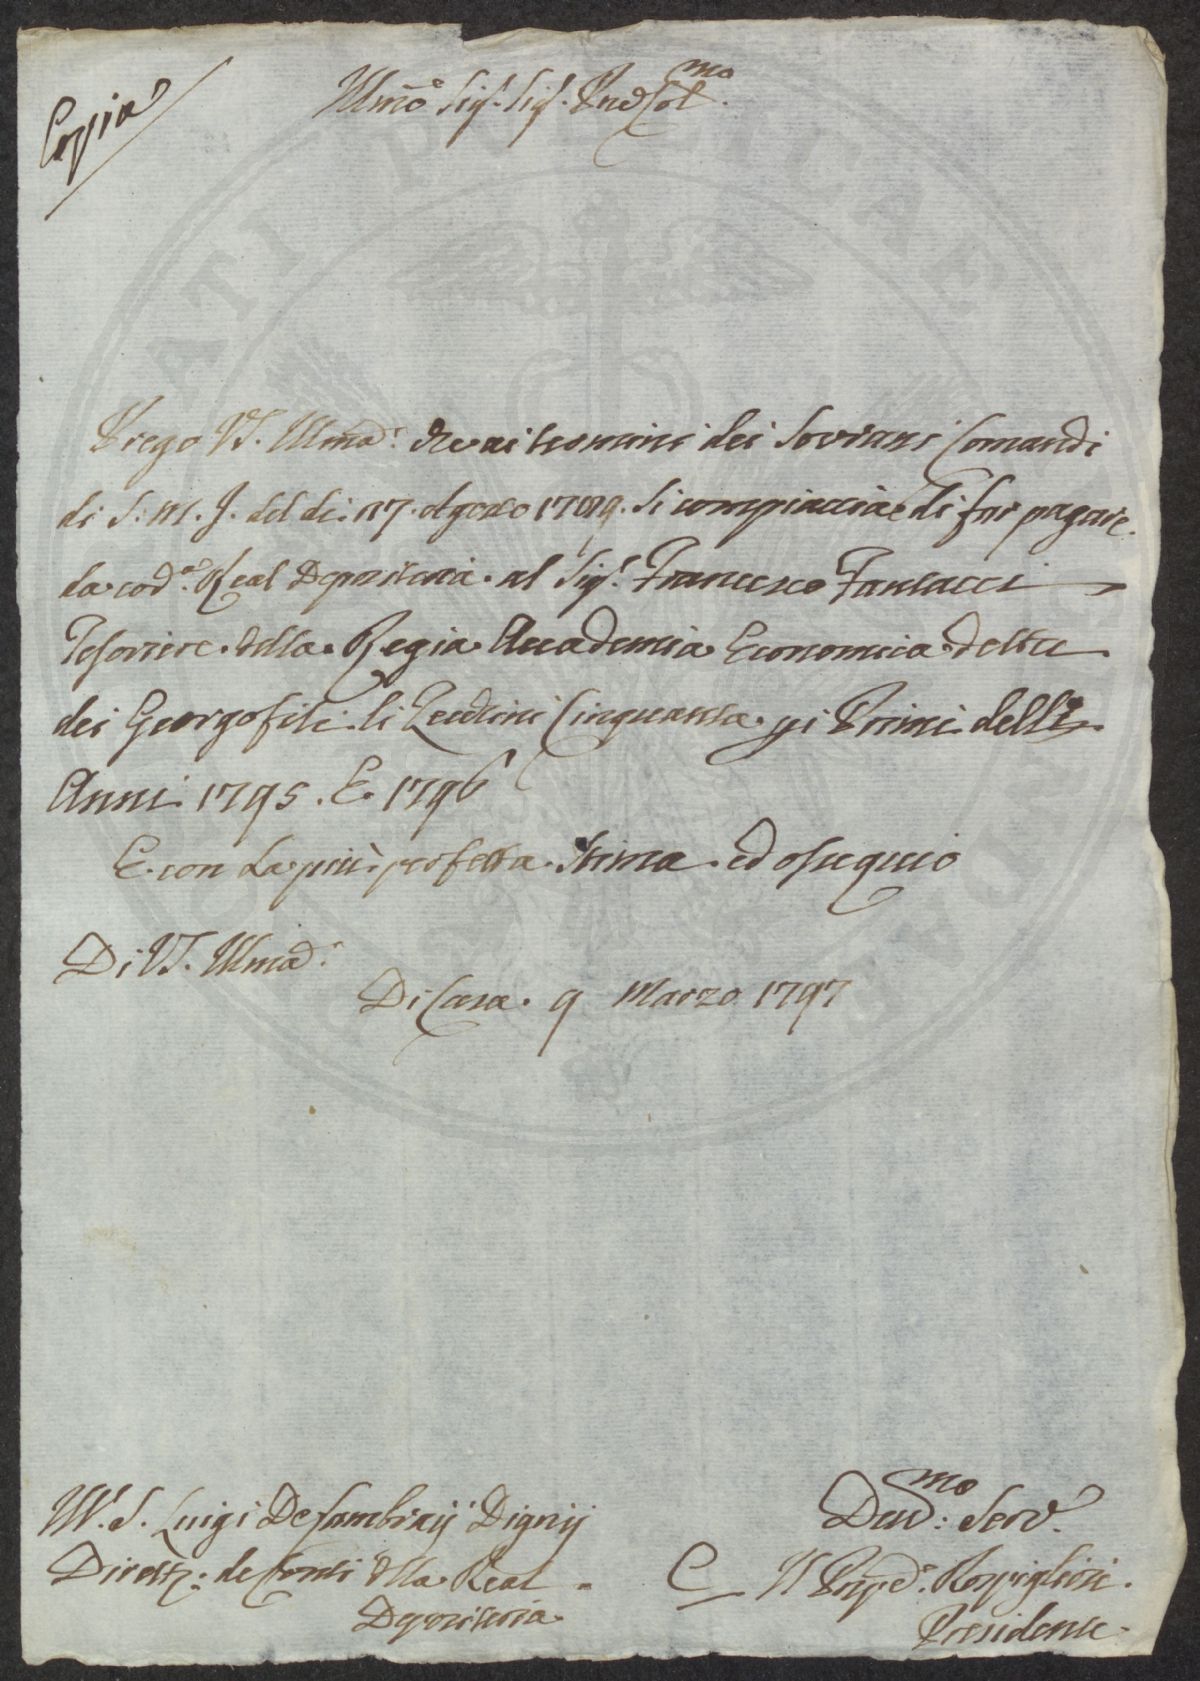 Copia
Illmõ Sigʳ. Sigʳ. Prõ Colmo.
Prego VS. Illmãˢ. che ai termini dei Sovrani Comandi
di S. M. I. del dì 17. Agosto 1789. si compiaccia di far pagare
da codª. Real Depositeria al Sigʳ. Francesco
Tesoriere della Regia Accademia Economica detta
dei Georgofili li Zecchini Cinquanta pi Premi delli
Anni 1795. E 1796
E con la più perfetta stima ed ossequio
Di VS. Illmaˢ.
Di Casa. 9 Marzo 1797
Sʳ. Luigi DeCambraij Dignij
Dirett. de Conti della Real
Depositeria
Devmo: Serv.
Rospigliosi.
Presidente.